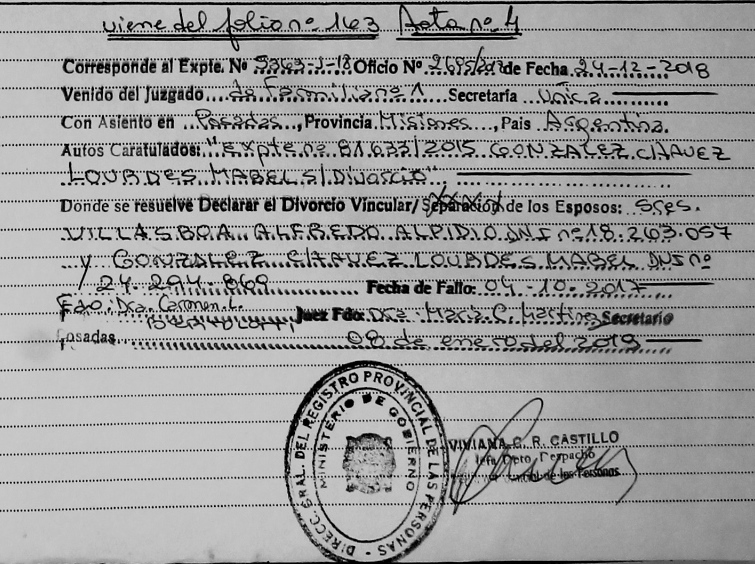 viene del folio nº 163 Acta nº 4
Corresponde al Expte. Nº 5363-J-18 Oficio Nº 2695/2017 de Fecha 24-12-2018
Venido del Juzgado de Familia nº 1 Secretaría única
Con Asiento en Posadas, Provincia Misiones, Pais Argentina.
Autos Caratulados: "Expte nº 81633/2015 GONZALEZ CHAVEZ
LOURDES MABEL S/ Divorcio"
Donde se resuelve Declarar el Divorcio Vincular/ Separación de los Esposos: Sres.
VILLASBOA ALFREDO ALPIDIO DNI nº 18.263.057
y GONZALEZ CHAVEZ LOURDES MABEL DNI nº
24.294.869 Fecha de Fallo: 04-10-2017
Fdo. Dra. Carmen L.
Juez Fdo: Dra. Maria C. Martinez Secretario
Posadas 08 de enero del 2019
DIRECC. GRAL. DEL REGISTRO PROVINCIAL DE LAS PERSONAS
MINISTERIO DE GOBIERNO
VIVIANA G. R. CASTILLO
Jefa Dpto. Despacho
de las Personas